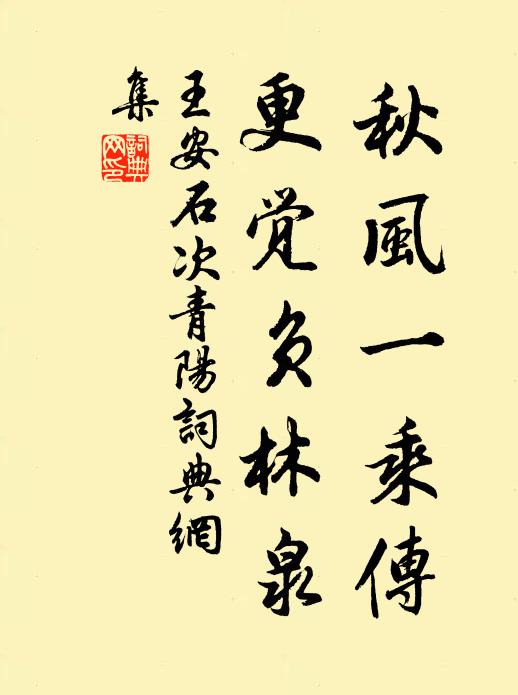 秋風一乘傳
更覺負林泉
王安石次青陽詞典網
集
詞典
网印